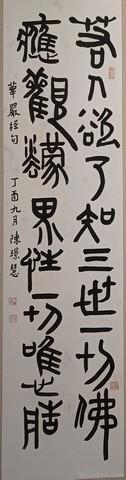 若人欲了知三世一切佛
應觀灋界性一切唯心艁
華嚴經句 丁酉九月 陳璟慧